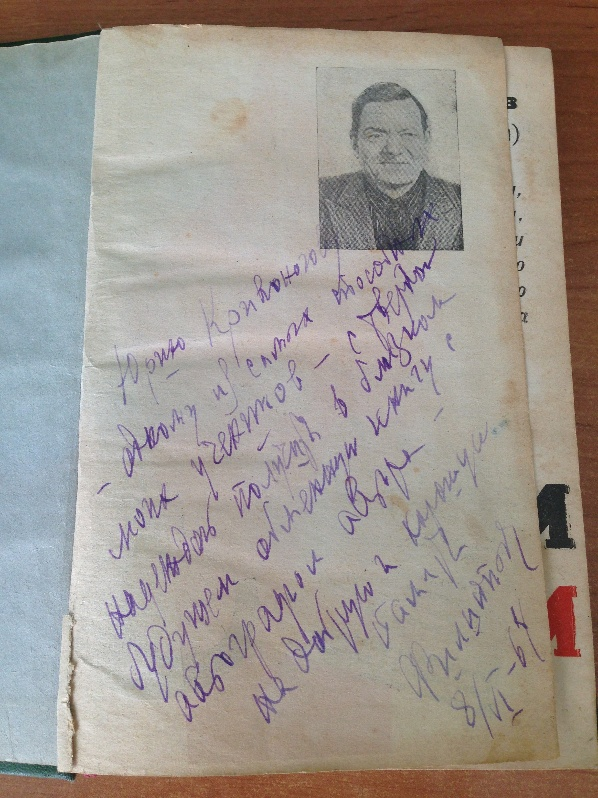 Юрию Кривоногову
- одному из самых способных
моих учеников - с твердой
надеждой получить в близком
будущем ответную книгу с
автографом автора -
на добрую и хорошую
память
Филиппов
8/VI-64
в
)
,
,
и
о
о
а
М
М